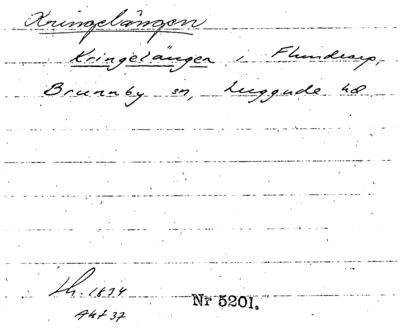 Kringelängen
Kringelängen, Flundrarp,
Brunnby sn, Luggude hd
Lh. 1874
Akt 37
Nr 5201.